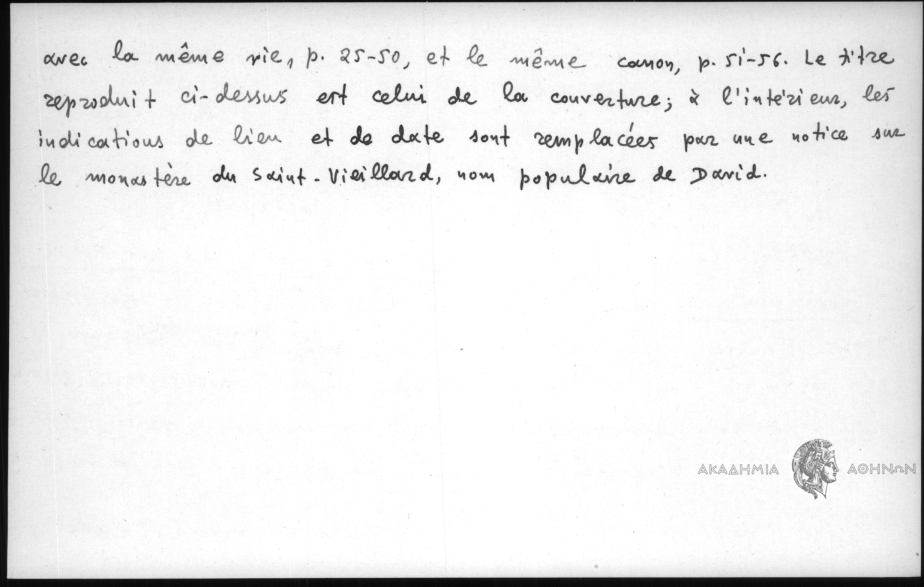 avec la même vie, p. 25-50, et le même canon, p. 51-56. Le titre
reproduit ci-dessus est celui de la couverture; à l'intérieur, les
indications de lieu et de date sont remplacées par une notice sur
le monastère du Saint-Vieillard, nom populaire de David.
ΑΚΑΔΗΜΙΑ ΑΘΗΝΩΝ